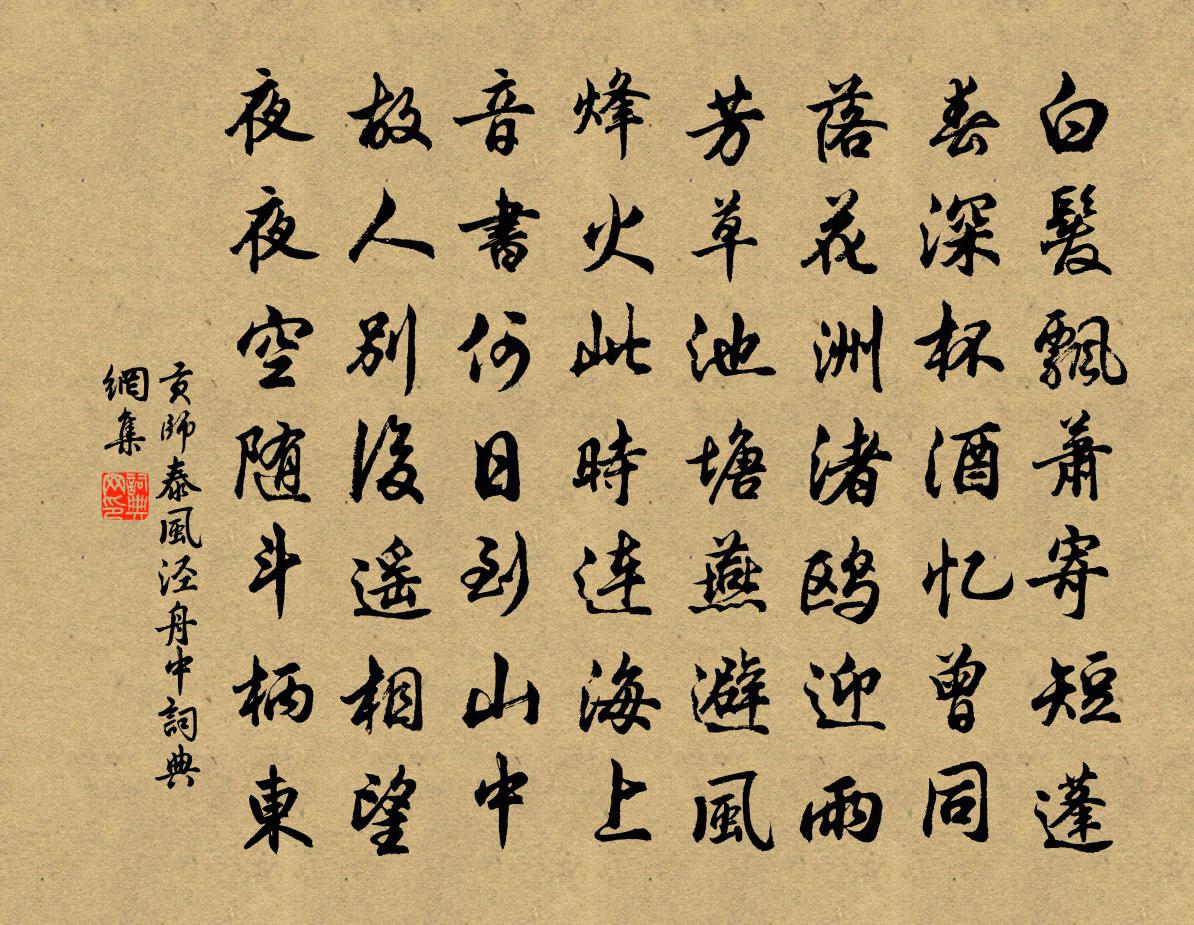 白髮飄蕭寄短蓬
春深杯酒忆曾同
落花洲渚鸥迎雨
芳草池塘燕避風
烽火此時连海上
音書何日到山中
故人别後遥相望
夜夜空随斗柄東
贡師泰風泾舟中詞典
網集
詞典网印